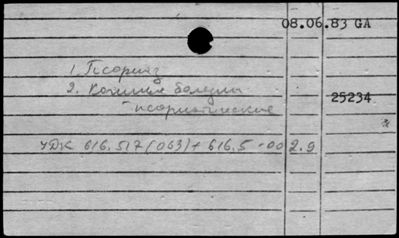 08.06.83 GA
1. Псориаз
2. Кожные болезни
25234
- псориатические
УДК 616.517(063)+616.5-002.9